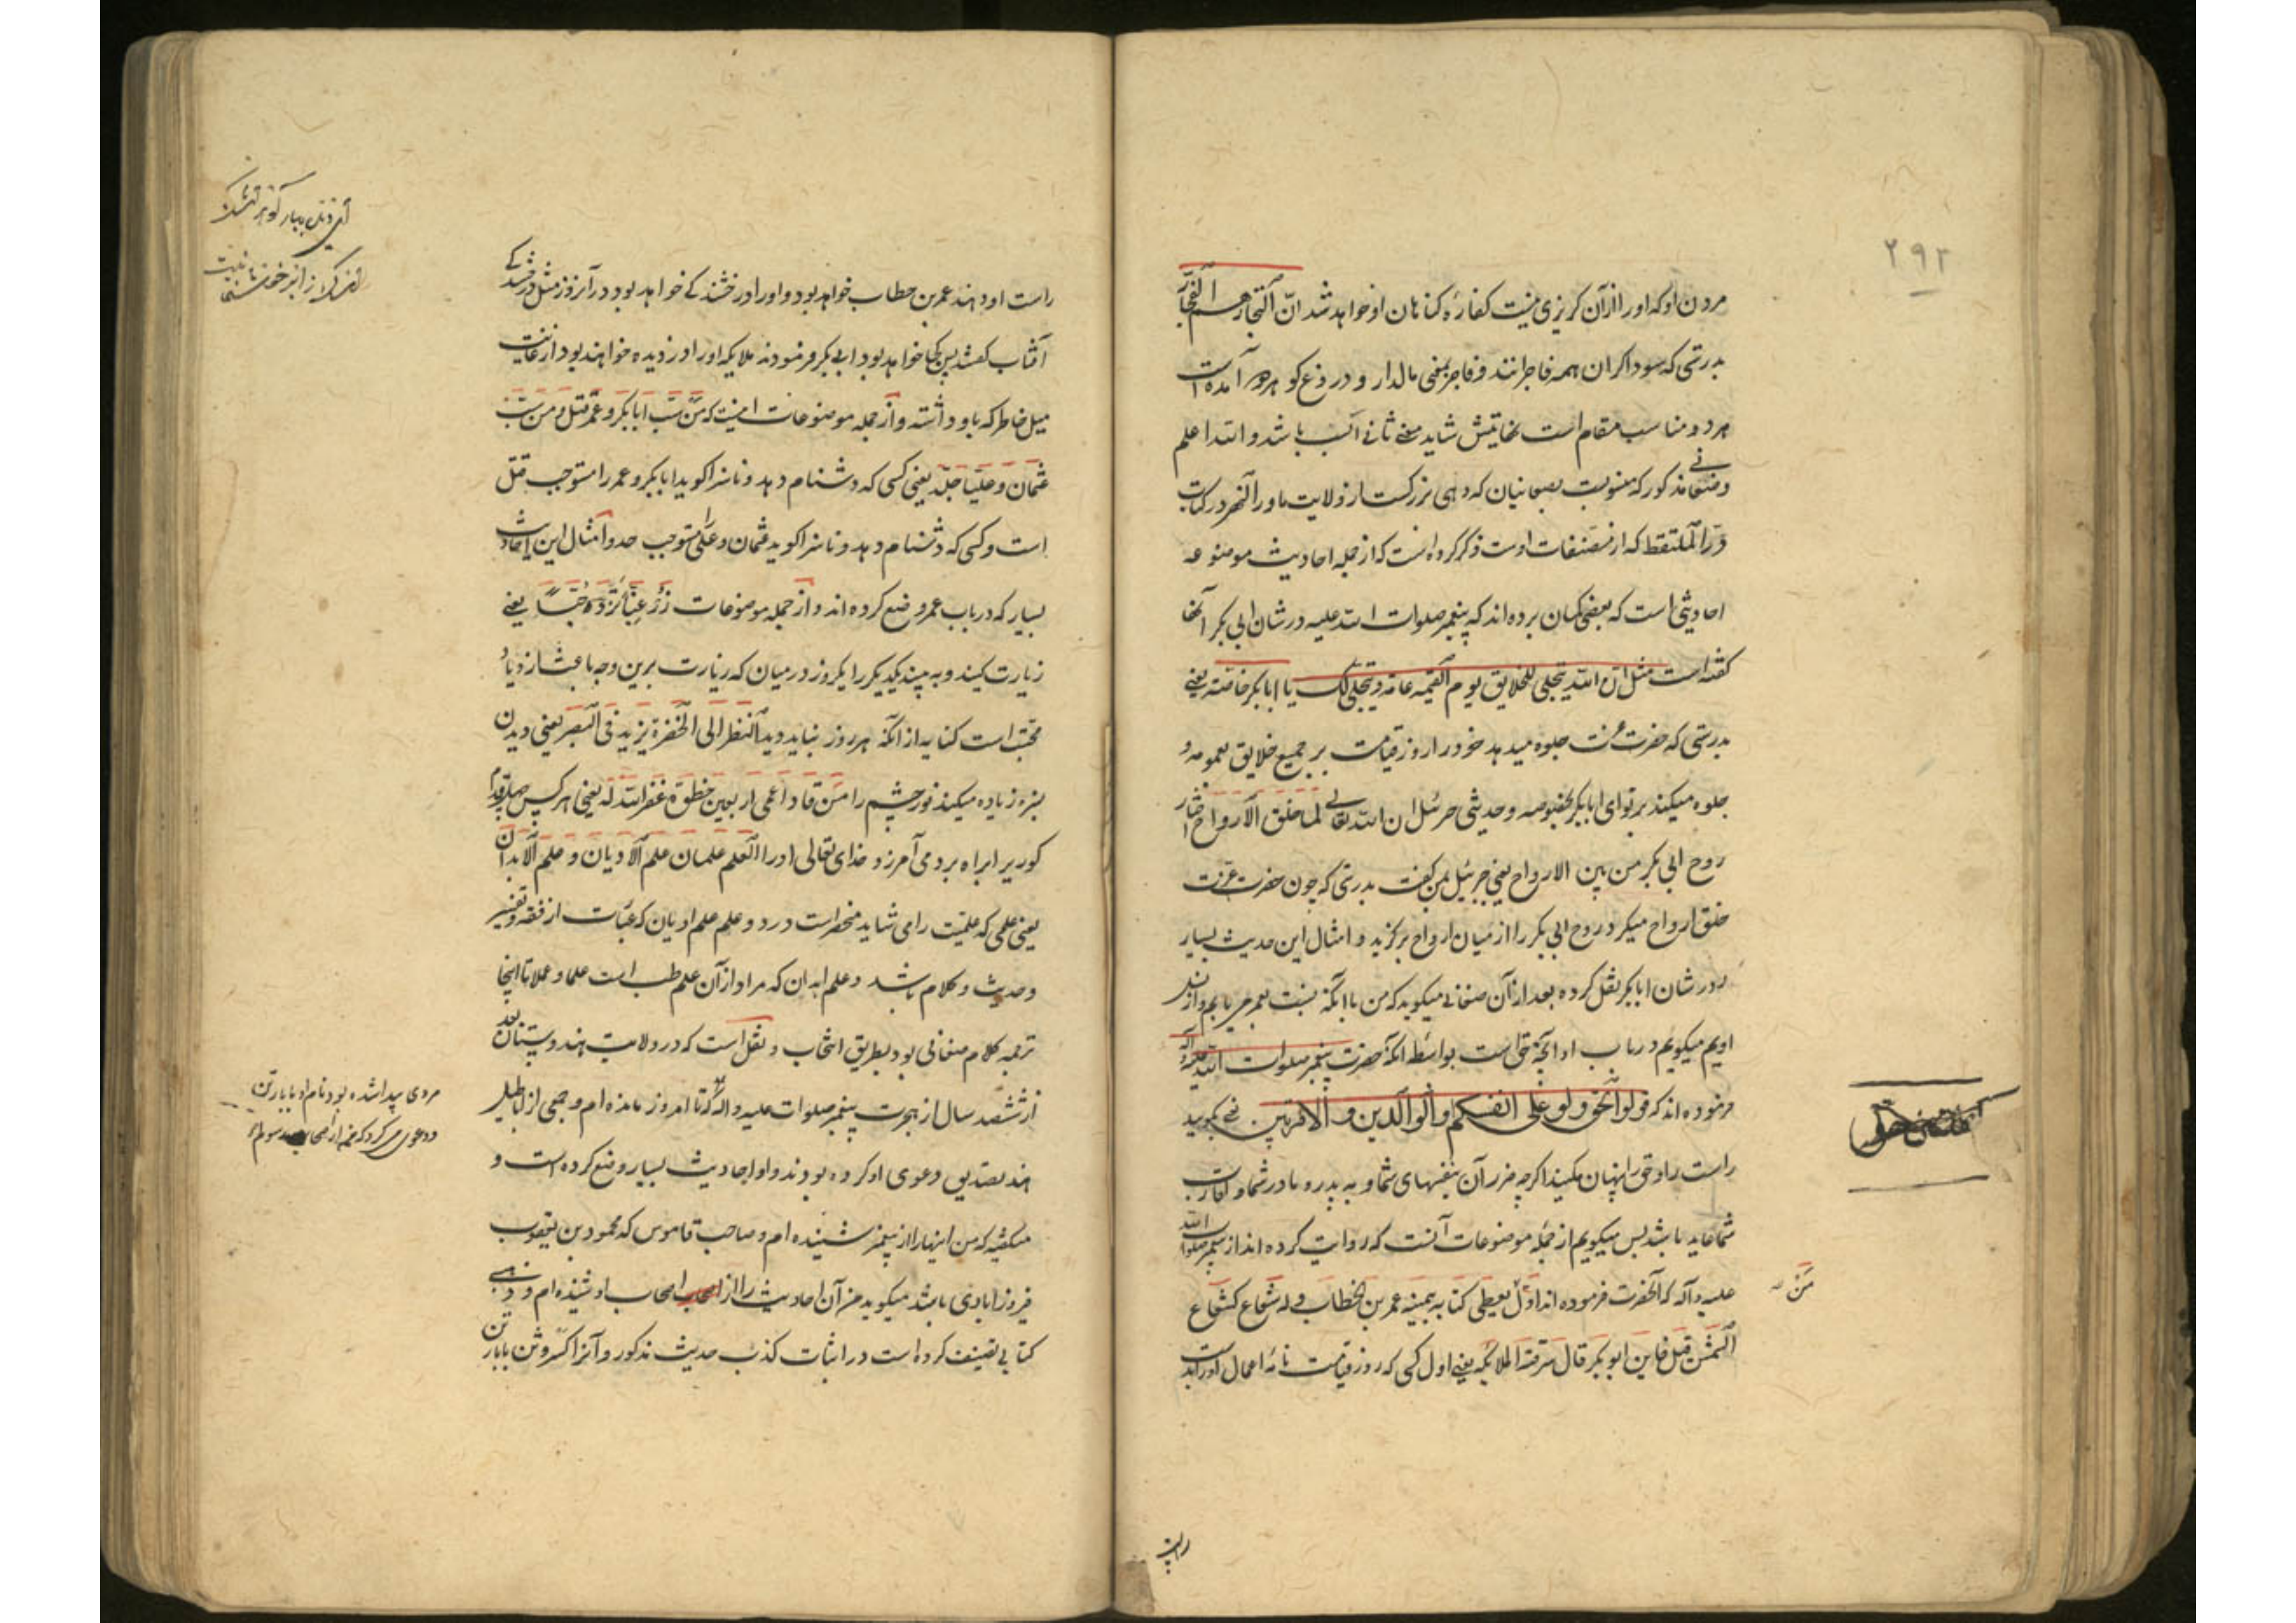 ۲۹۲
مردن او که او را از آن گریزی نیست کفاره گناهان او خواهد شد انّ التجار هم الفجّار
بدرستی که سوداگران همه فاجرانند و فاجر بمعنی مالدار و دروغ گو هر دو آمده است
هر دو مناسب مقام است نهایتش شاید معنی ثانی انسب باشد و الله اعلم
و صغانی مذکور که منسوبست بصغانیان که دهی بزرگست از ولایت ماوراء النهر در کتاب
درّ الملتقط که از مصنفات اوست ذکر کرده است که از جمله احادیث موضوعه
احادیثی است که بعضی گمان برده اند که پیغمبر صلوات الله علیه در شان ابی بکر آنها
گفته است مثل ان الله یتجلی للخلایق یوم القیمه عامه و یتجلی لک یا ابابکر خاصّة یعنی
بدرستی که حضرت عزت جلوه میدهد خود را روز قیامت بر جمیع خلایق بعموم و
جلوه میکند بر تو ای ابابکر بخصوصه و حدیثی جبرئیل ان الله تعالی لما خلق الارواح اختار
روح ابی بکر من بین الارواح یعنی جبرئیل بمن گفت بدرستی که چون حضرت عزت
خلق ارواح میکرد روح ابی بکر را از میان ارواح برگزید و امثال این حدیث بسیار
در شان ابابکر نقل کرده بعد از آن صغانی میگوید که من با آنکه نسبت بعمر می یابم و از نسل
اویم میگویم در باب او آنچه حق است بواسطه آنکه حضرت پیغمبر صلوات الله علیه و آله
فرموده اند که قولوا الحق ولو علی انفسکم و الوالدین و الاقربین یعنی بگویید
راست را و حق را پنهان مکنید اگرچه ضرر آن بنفسهای شما و به پدر و مادر شما و اقارب
شما عاید باشد پس میگویم از جمله موضوعات آنست که روایت کرده اند از پیغمبر صلوات الله
علیه و آله که آنحضرت فرموده اند اوّل یعطی کتابه بیمینه عمر بن الخطاب و له شعاع کشعاع
مَنْ
الشمس قیل فاین ابو بکر قال سرقته الملائکه یعنی اول کسی که روز قیامت نامه اعمال او را بدست
راست
راست او دهند عمر بن خطاب خواهد بود و او را درخشندگی خواهد بود در آنروز مثل درخشندگی
آفتاب گفتند پس کجا خواهد بود ابی بکر فرمودند ملایکه او را دزدیده خواهند بود از غایت
میل خاطر که باو داشته و از جمله موضوعات اینست که من سبّ ابابکر و عمر قتل و من سبّ
عثمان و علیّا جلّد یعنی کسی که دشنام دهد و ناسزا گوید ابابکر و عمر را مستوجب قتل
است و کسی که دشنام دهد و ناسزا گوید عثمان و علی را مستوجب حد و امثال این احادیث
بسیار که در باب عمر وضع کرده اند و از جمله موضوعات زر غبّا تزدد حبّا یعنی
زیارت کنید و به بینید یکدیگر را یکروز در میان که زیارت برین وجه باعث ازدیاد
محبتست کنایه از آنکه هر روز نباید دید النظر الی الخضرة یزید فی البصر یعنی دیدن
سبزه زیاده میکند نور چشم را من قاد اعمی اربعین خطوة غفر الله له یعنی هر کس چهل قدم
کور را براه برد می آمرزد خدای تعالی او را العلم علمان علم الادیان و علم الابدان
یعنی علمی که علمیت را می شاید منحصر است در دو علم علم ادیان که عبارت از فقه و تفسیر
و حدیث و کلام باشد و علم ابدان که مراد از آن علم طب است علما و عملا تا اینجا
ترجمه کلام صغانی بود بطریق انتخاب و نقل است که در ولایت هندوستان بعد
از ششصد سال از هجرت پیغمبر صلوات علیه و آله که تا امروز مانده ام و جمعی از اباطیل
هند تصدیق دعوی او کرده بودند و او احادیث بسیار وضع کرده است و
میگفته که من اینها را از پیغمبر شنیده ام و صاحب قاموس که محمود بن یعقوب
فیروزابادی باشد میگوید من آن احادیث را از اصحاب اصحاب او شنیده ام و ذهبی
کتابی تصنیف کرده است در اثبات کذب حدیث مذکور و آنرا کسر وثن بابا رتن
مردی پیدا شده بود نام او بابا رتن
و دعوی می کرد که من از اصحاب رسولم